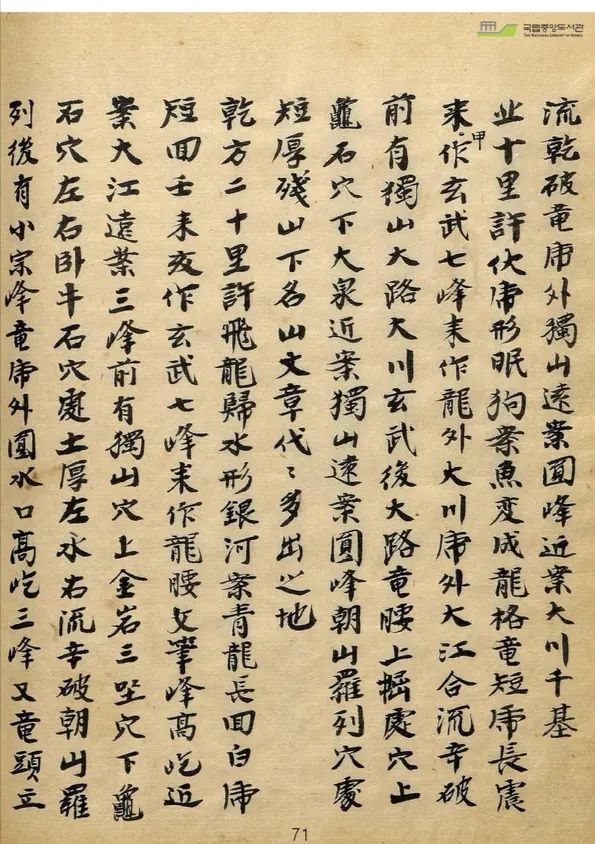 국립중앙도서관
THE NATIONAL LIBRARY OF KOREA
流乾破竜帍外獨山遠案圓峰近案大川千基
北十里許伏帍形眠狗案魚变成龍格竜短帍長震
来甲作玄武七峰耒作龍外大川帍外大江合流辛破
前有獨山大路大川玄武後大路竜腰上掘處穴上
龜石穴下大泉近案獨山遠案圓峰朝山羅列穴處
短厚殘山下名山文章代〻多出之地
乾方二十里許飛龍歸水形銀河案青龍長回白帍
短回壬耒亥作玄武七峰耒作龍腰文筆峰高屹近
案大江遠案三峰前有獨山穴上金岩三坐穴下龜
石穴左右卧牛石穴處土厚左水右流辛破朝山羅
列後有小宗峰竜帍外圓水口高屹三峰又竜頭立
71